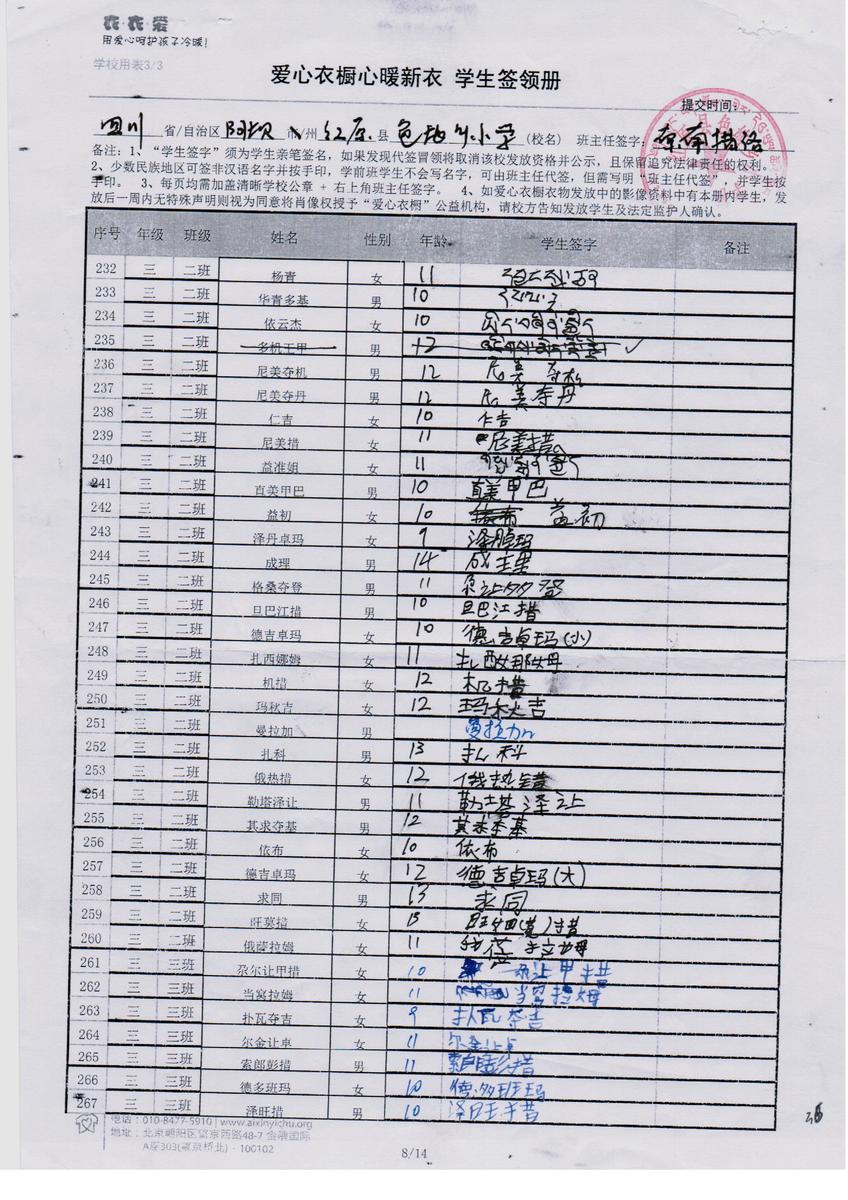 衣衣爱
用爱心呵护孩子冷暖!
学校用表3/3
爱心衣橱心暖新衣 学生签领册
提交时间:
四川 省/自治区 阿坝 市/州 红原 县 色地乡小学 (校名) 班主任签字:
备注:1、“学生签字”须为学生亲笔签名,如果发现代签冒领将取消该校发放资格并公示,且保留追究法律责任的权利。
2、少数民族地区可签非汉语名字并按手印,学前班学生不会写名字,可由班主任代签,但需写明“班主任代签”,并学生按
手印。 3、每页均需加盖清晰学校公章 + 右上角班主任签字。 4、如爱心衣橱衣物发放中的影像资料中有本册内学生,发
放后一周内无特殊声明则视为同意将肖像权授予“爱心衣橱”公益机构,请校方告知发放学生及法定监护人确认。
序号 年级 班级 姓名 性别 年龄 学生签字 备注
232 三 二班 杨青 女 11
233 三 二班 华青多基 男 10
234 三 二班 依云杰 女 10
235 三 二班 多机王甲 男 12
236 三 二班 尼美夺机 男 12 尼美夺机
237 三 二班 尼美夺丹 男 12 尼美夺丹
238 三 二班 仁吉 女 10 仁吉
239 三 二班 尼美措 女 11 尼美措
240 三 二班 益准姐 女 11
241 三 二班 直美甲巴 男 10 直美甲巴
242 三 二班 益初 女 10 益初
243 三 二班 泽丹卓玛 女 9
244 三 二班 成理 男 14 成理
245 三 二班 格桑夺登 男 11
246 三 二班 旦巴江措 男 10 旦巴江措
247 三 二班 德吉卓玛 女 10 德吉卓玛(小)
248 三 二班 扎西娜姆 女 11 扎西娜姆
249 三 二班 机措 女 12 机措
250 三 二班 玛秋吉 女 12 玛秋吉
251 三 二班 曼拉加 男 曼拉加
252 三 二班 扎科 男 13 扎科
253 三 二班 俄热措 女 12 俄热错
254 三 二班 勒塔泽让 男 11 勒塔泽让
255 三 二班 其求夺基 男 12 其求夺基
256 三 二班 依布 女 10 依布
257 三 二班 德吉卓玛 女 12 德吉卓玛(大)
258 三 二班 求同 男 13 求同
259 三 二班 旺莫措 女 13
260 三 二班 俄萨拉姆 女 11
261 三 三班 尕尔让甲措 男 10
262 三 三班 当窝拉姆 女 11 当窝拉姆
263 三 三班 扑瓦夺吉 女 9
264 三 三班 尔金让卓 女 11 尔金让卓
265 三 三班 索郎彭措 男 11 索郎彭措
266 三 三班 德多班玛 女 10 德多班玛
267 三 三班 泽旺措 男 10 泽旺措
电话:010-8477-5910 | www.aixinyichu.org
地址:北京朝阳区望京西路48-7 金融国际
A座303(望京桥北) - 100102
8/14